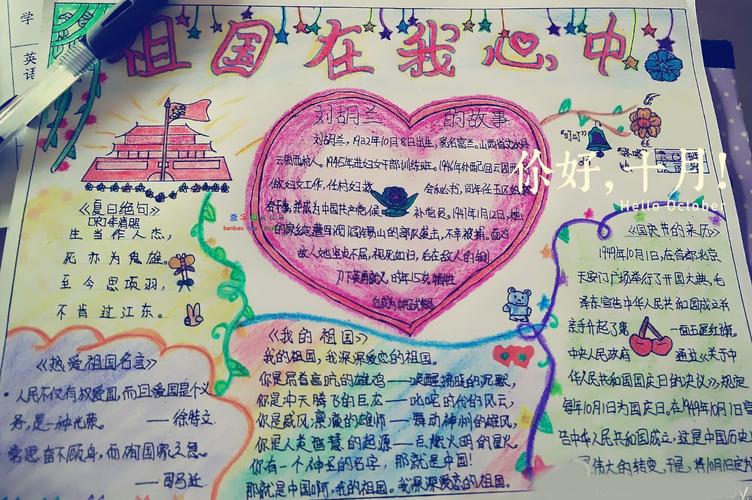 学
英语
祖国在我心中
《夏日绝句》
生当作人杰,
死亦为鬼雄。
至今思项羽,
不肯过江东。
刘胡兰 的故事
刘胡兰,1932年10月8日出生,原名富兰,山西省文水县
云周西村人。1945年进妇女干部训练班。1946年
做妇女工作,任村妇 会秘书,同年任五区
并成为中国共产党候 补党员,1947年1月12日,她
的部队 ,不幸被捕。面对
敌人她坚贞不屈,视死如归,
的年15岁,牺牲
你好,十月!
Hello October
《国庆节的来历》
1949年10月1日,在首都北京
天安门广场举行了开国大典,毛
泽东宣告中华人民共和国成立并
亲手升起了第 一面五星红旗。
中央人民政府 通过《关于中
华人民共和国国庆日的决议》,规定
每年10月1日为国庆日。在1949年10月1日宣
告中华人民共和国成立,这是中国历史上
伟大的转变。于是,将10月1日定
《热爱祖国名言》
人民不仅有权爱国,而且爱国是个义
务,是一种光荣。——徐特立
常思奋不顾身,而殉国家之急。
——司马迁
《我的祖国》
我的祖国,我深深爱恋的祖国。
你是昂首高吭的雄鸡——唤醒拂晓的沉默,
你是冲天腾飞的巨龙——叱咤时代的风云,
你是威风凛凛的雄师——舞动神州的雄风,
你是人类智慧的起源——点燃文明的星火。
你有一个神圣的名字,那就是中国!
那就是中国啊,我的祖国。我深深爱恋的祖国。